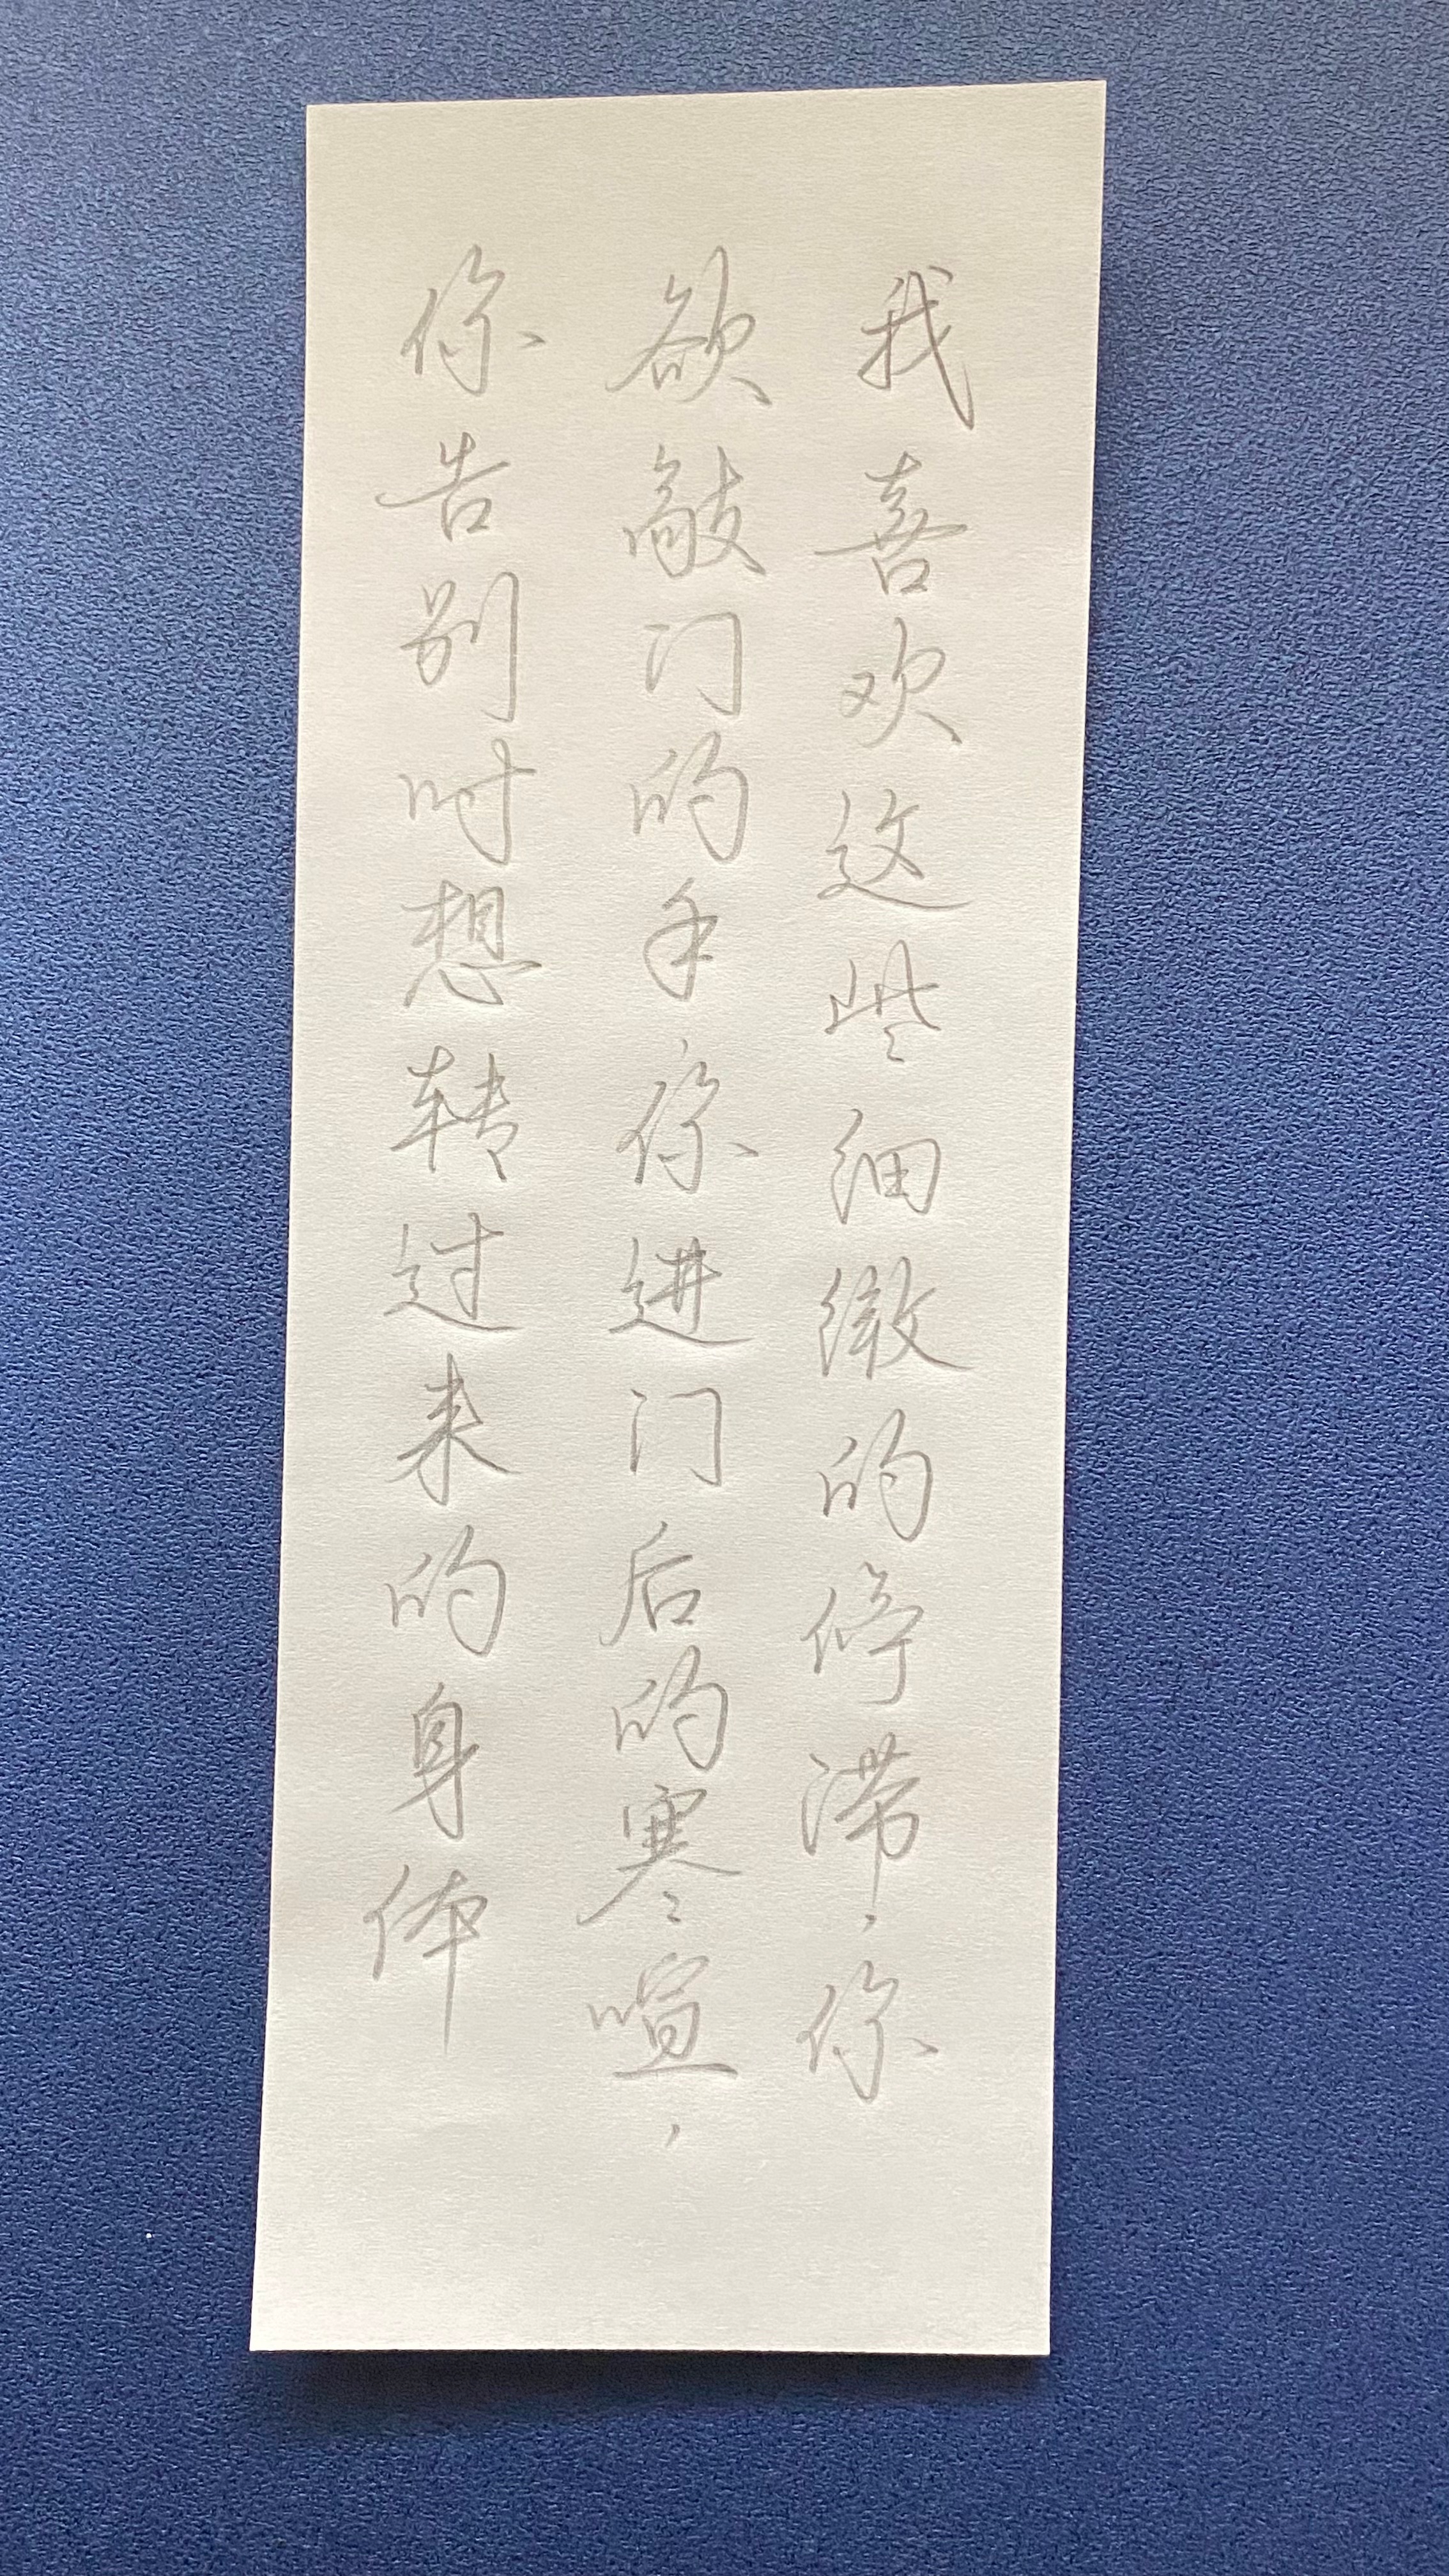 我喜欢这些细緻的停滞，你
欲敲门的手，你进门后的寒暄，
你告别时想转过来的身体